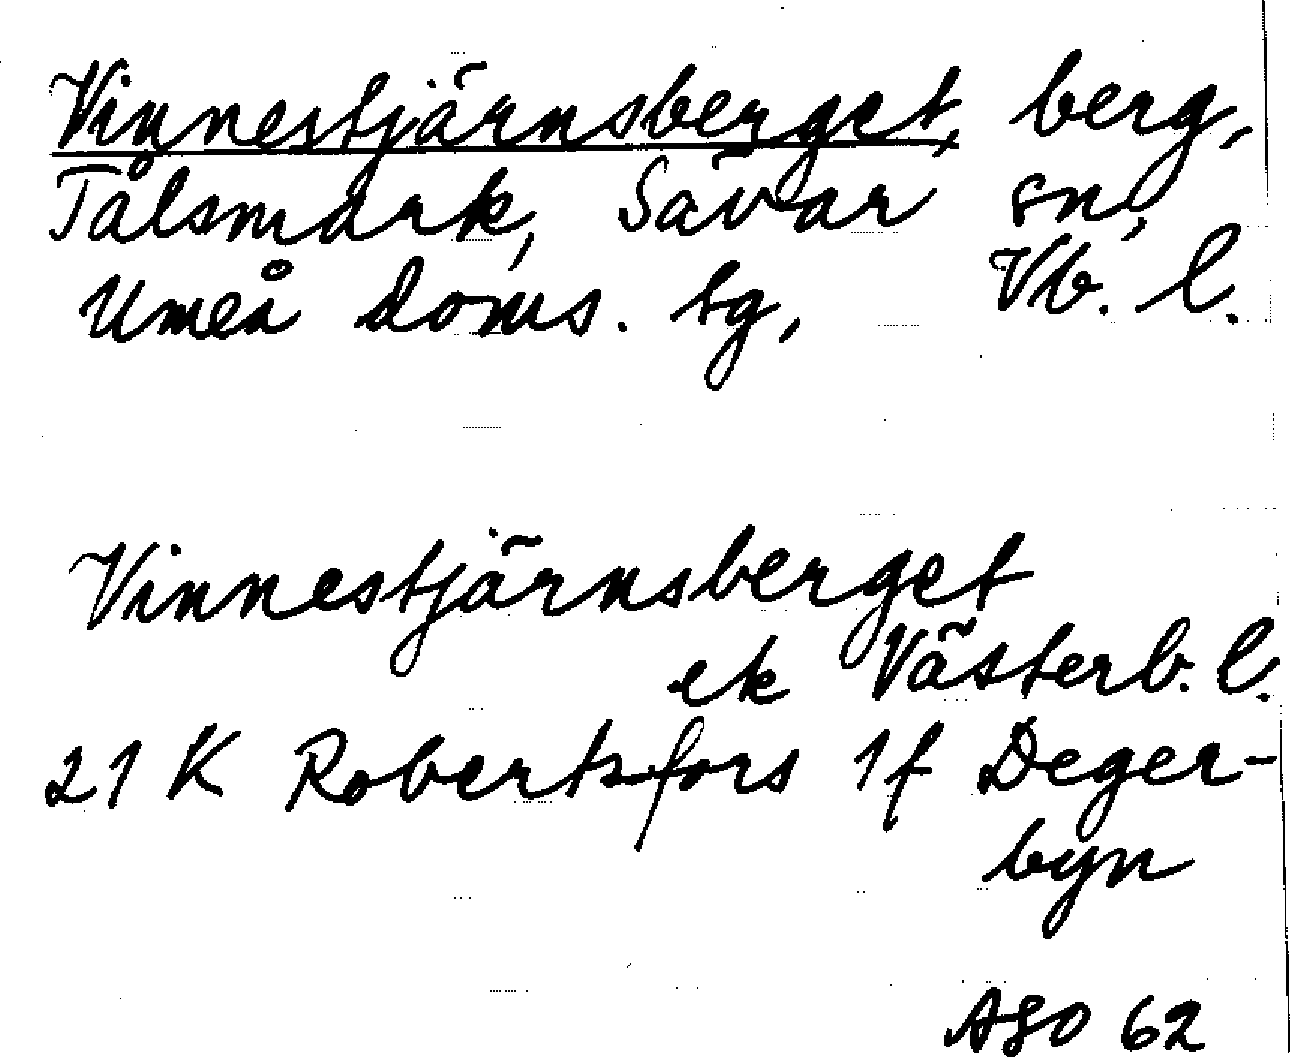 Vinnestjärnsberget, berg,
Tålsmark, Sävar sn,
Umeå doms. sg, Vb. l.
Vinnestjärnsberget
ek Västerb. l.
21 K Robertsfors 1f Deger-
byn
ASO 62